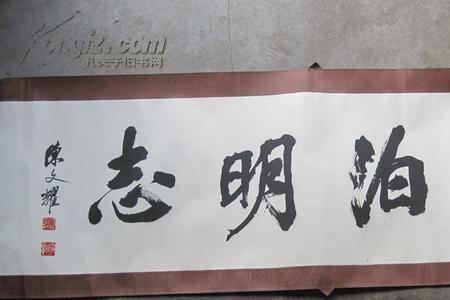 泊明志
陈文耀
Kongfz.com
孔夫子旧书网